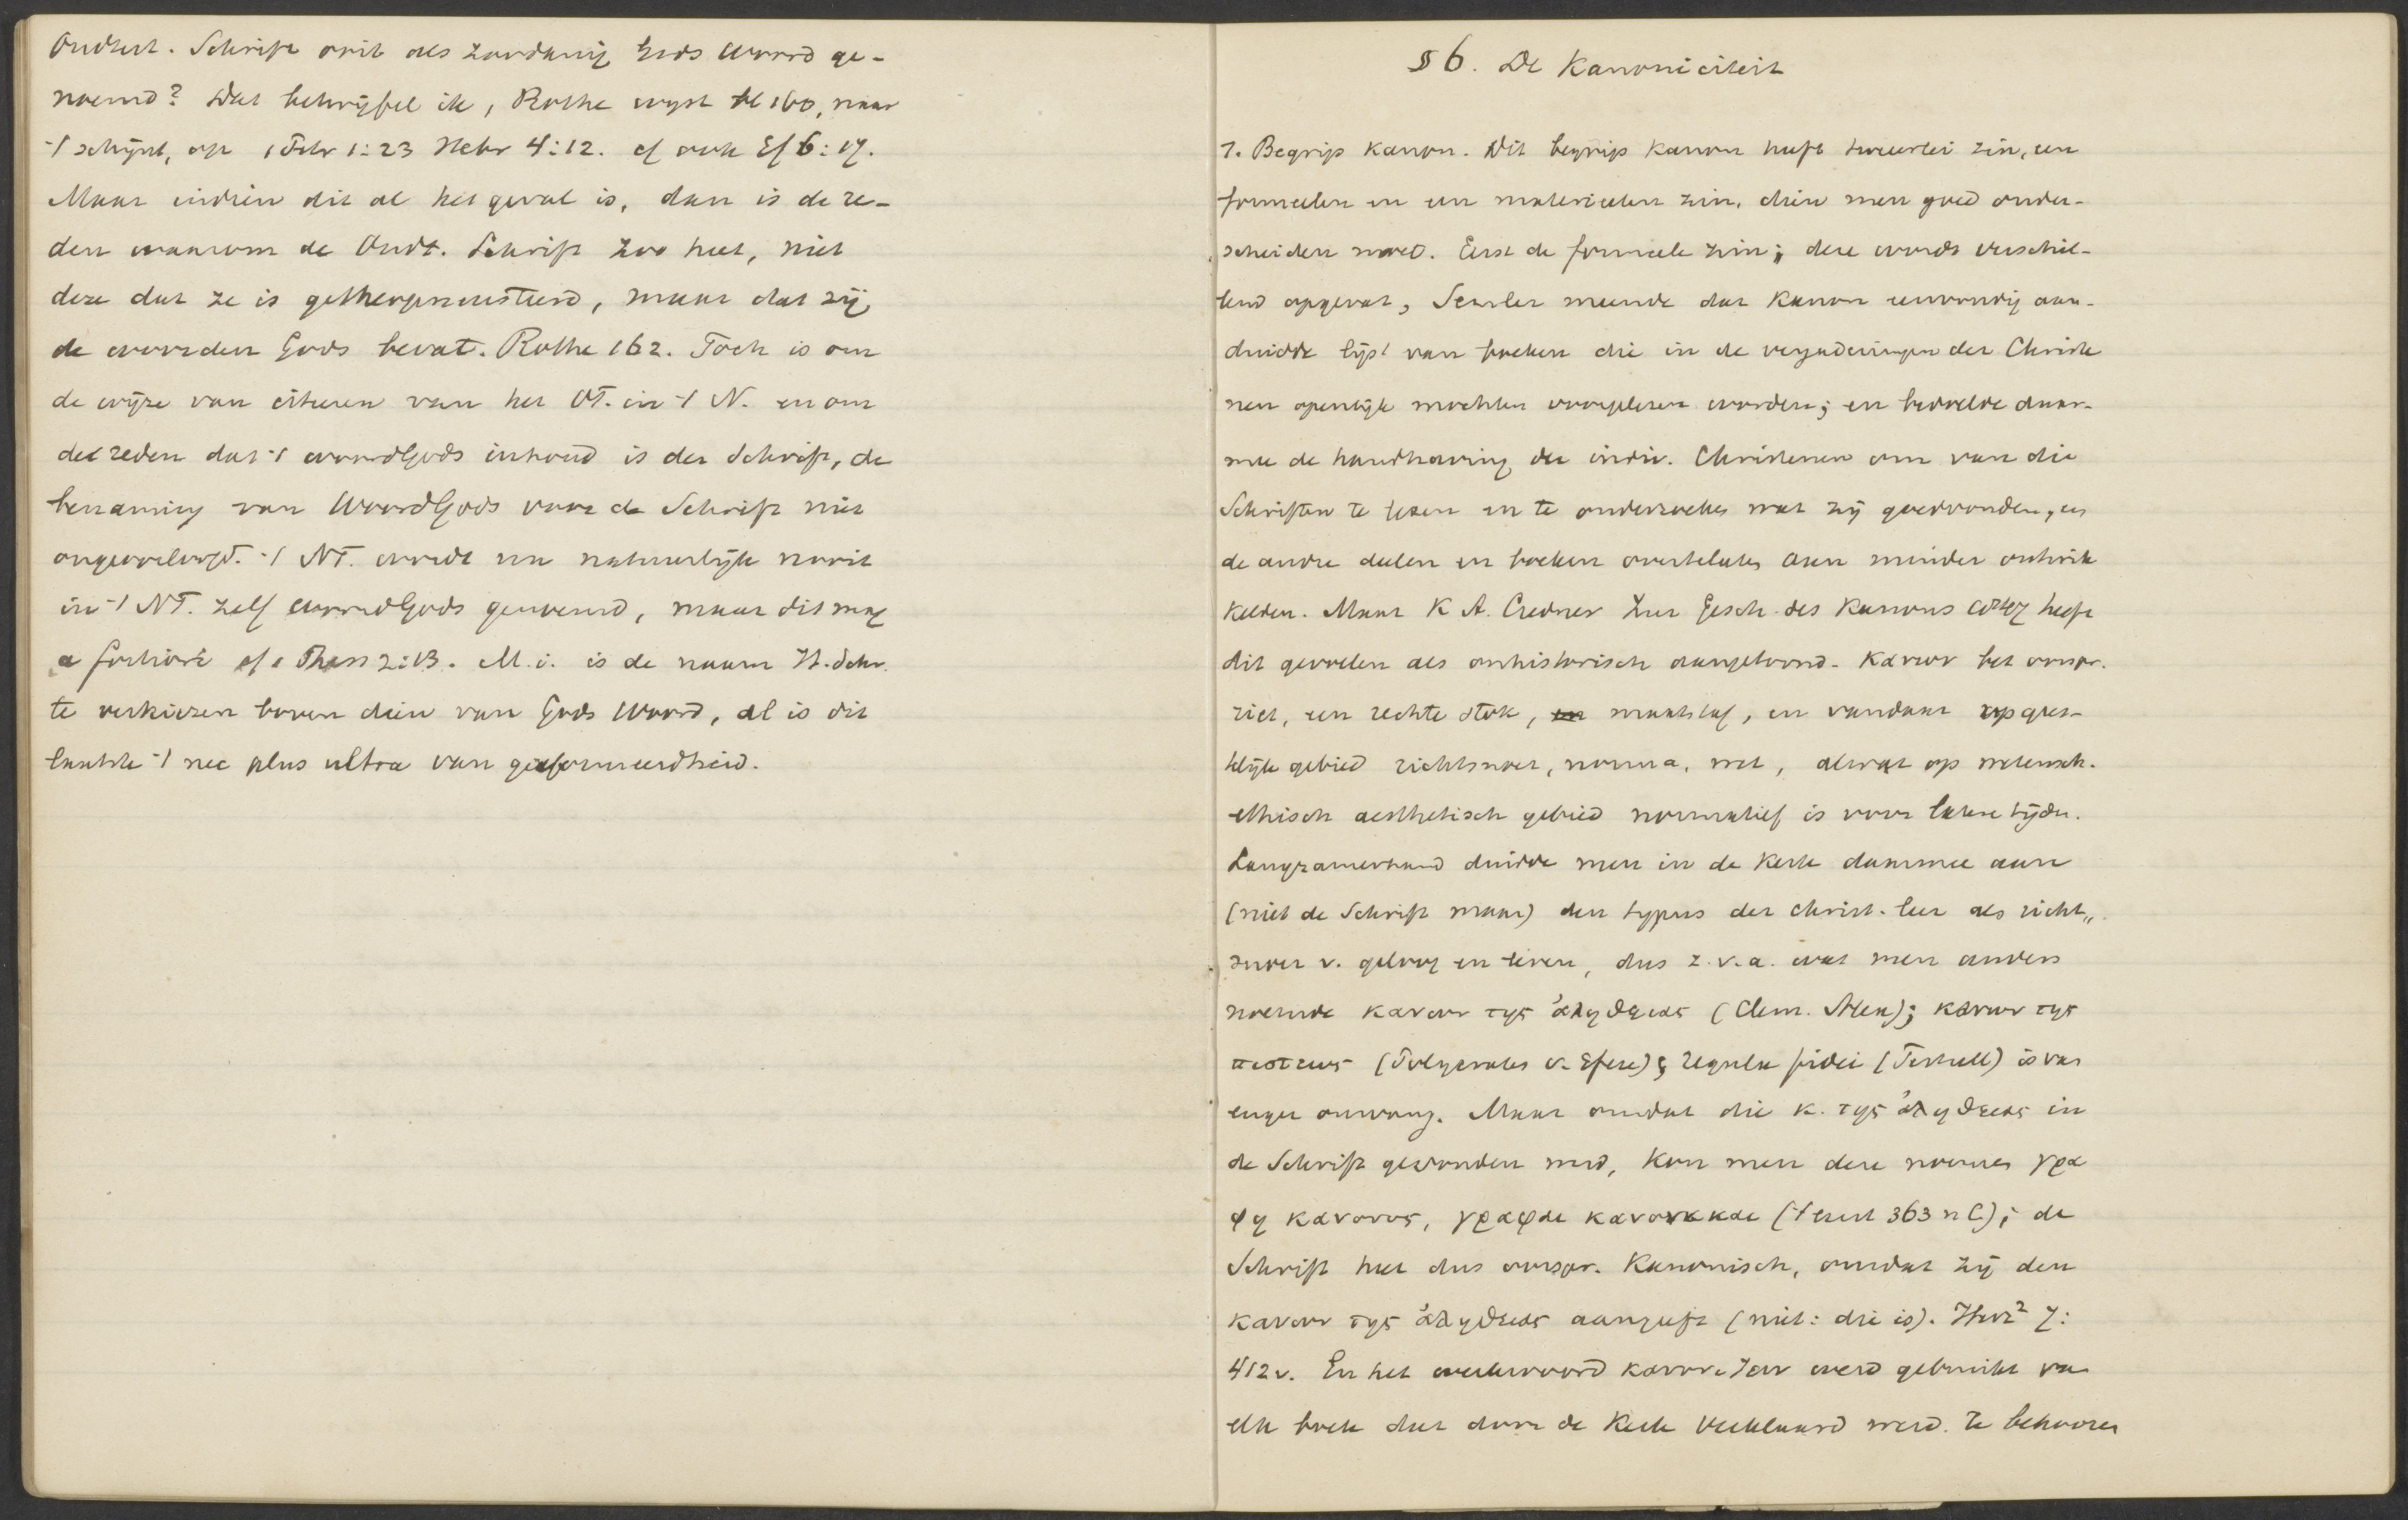 Oudtest. Schrift ooit als zoodanig Gods Woord ge-
noemd? Dat betwijfel ik, Rothe wijst bl 160, naar
't schijnt, op 1 Petr 1:23 Hebr 4:12. cf ook Ef 6:17.
Maar indien dit al het geval is, dan is de re-
den waarom de Oudt. Schrift zoo heet, niet
deze dat ze is getheopneusteerd, maar dat zij
de woorden Gods bevat. Rothe 162. Toch is om
de wijze van citeeren van het OT. in 't N. en om
de reden dat 't woord Gods inhoud is der Schrift, de
benaming van Woord Gods voor de Schrift niet
ongeoorloofd. 't NT. wordt nu natuurlijk nooit
in 't NT. zelf woord Gods genoemd, maar dit mag
a fortiori cf 1 Thess 2:13. M.i. is de naam H. Schr.
te verkiezen boven dien van Gods Woord, al is dit
laatste 't nec plus ultra van gereformeerdheid.
§ 6. De Kanoniciteit
1. Begrip Kanon. Dit begrip Kanon heeft tweeerlei zin, een
formeelen en een materieelen zin, dien men goed onder-
scheiden moet. Eerst de formeele zin; deze wordt verschil-
lend opgevat, Semler meende dat Kanon eenvoudig aan-
duidde lijst van boeken die in de vergaderingen der Christe
nen openlijk mochten voorgelezen worden; en bedoelde daar-
mee de handhaving der indiv. Christenen om van die
Schriften te lezen en te onderzoeken wat zij goedvonden, en
de andre deelen en boeken overtelaten aan minder ontwik
kelden. Maar K A. Credner Zur Gesch. des Kanons 1847 heeft
dit gevoelen als onhistorisch aangetoond. Κανων bet oorspr.
riet, een rechte stok, maatstaf, en vandaar op gees-
telijk gebied richtsnoer, norma, wet, alwat op wetensch.
ethisch aesthetisch gebied normatief is voor latere tijden.
Langzamerhand duidde men in de Kerk daarmee aan
(niet de Schrift maar) den typus der christ. leer als richt„
snoer v. geloof en leven, dus z.v.a. wat men anders
noemde κανων της ἀληθειας (Clem. Alex); κανων της
πιστεως (Polycrates v. Efeze); regula fidei (Tertull) is van
enger omvang. Maar omdat die κ. της ἀληθειας in
de Schrift gevonden werd, kon men deze noemen γρα
φη κανονος, γραφαι κανονικαι (' eerst 363 n C.); de
Schrift heet dus oorspr. Kanonisch, omdat zij den
κανων της ἀληθειας aangeeft (niet: die is). Herz² 7:
412v. En het werkwoord κανονιζειν werd gebruikt van
elk boek dat door de Kerk verklaard werd te behooren